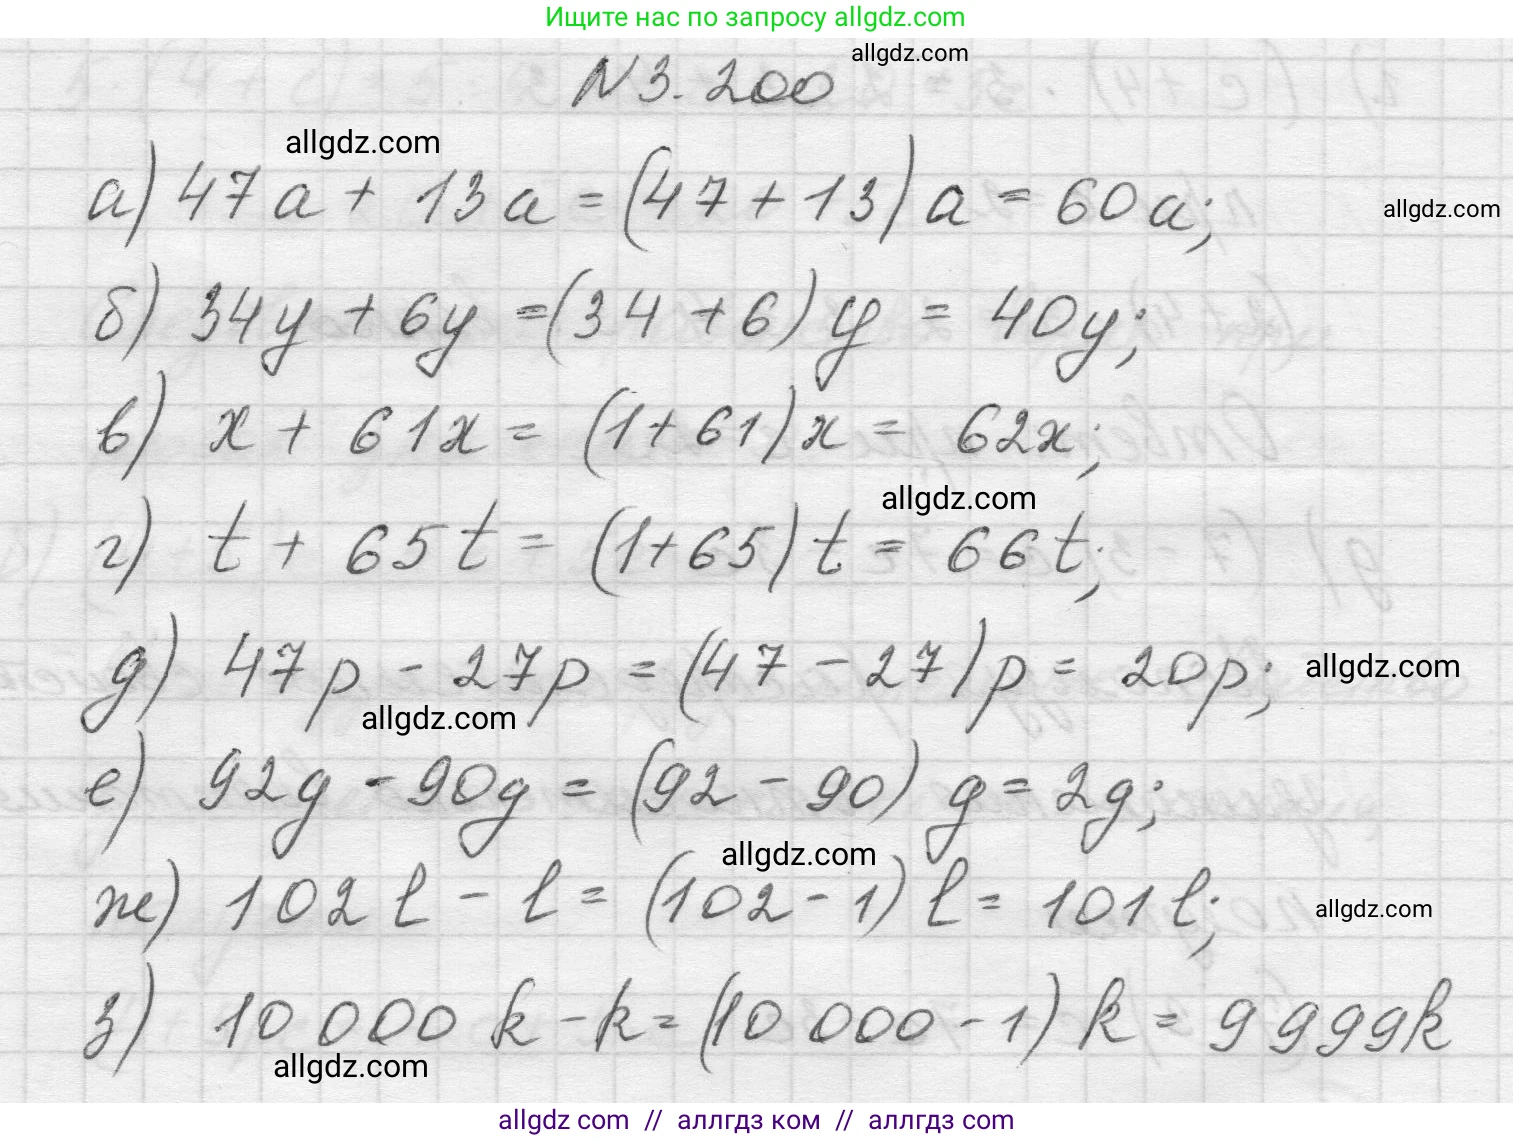 Ищите нас по запросу allgdz.com
allgdz.com
N 3.200
allgdz.com
а) 47a + 13a = (47 + 13) a = 60a;
allgdz.com
б) 34y + 6y = (34 + 6) y = 40y;
в) x + 61x = (1 + 61) x = 62x;
allgdz.com
г) t + 65t = (1 + 65) t = 66t;
д) 47p - 27p = (47 - 27) p = 20p;
allgdz.com
allgdz.com
е) 92g - 90g = (92 - 90) g = 2g;
allgdz.com
ж) 102l - l = (102 - 1) l = 101l;
allgdz.com
з) 10 000 k - k = (10 000 - 1) k = 9999k
allgdz.com
allgdz.com // аллгдз ком // аллгдз.com